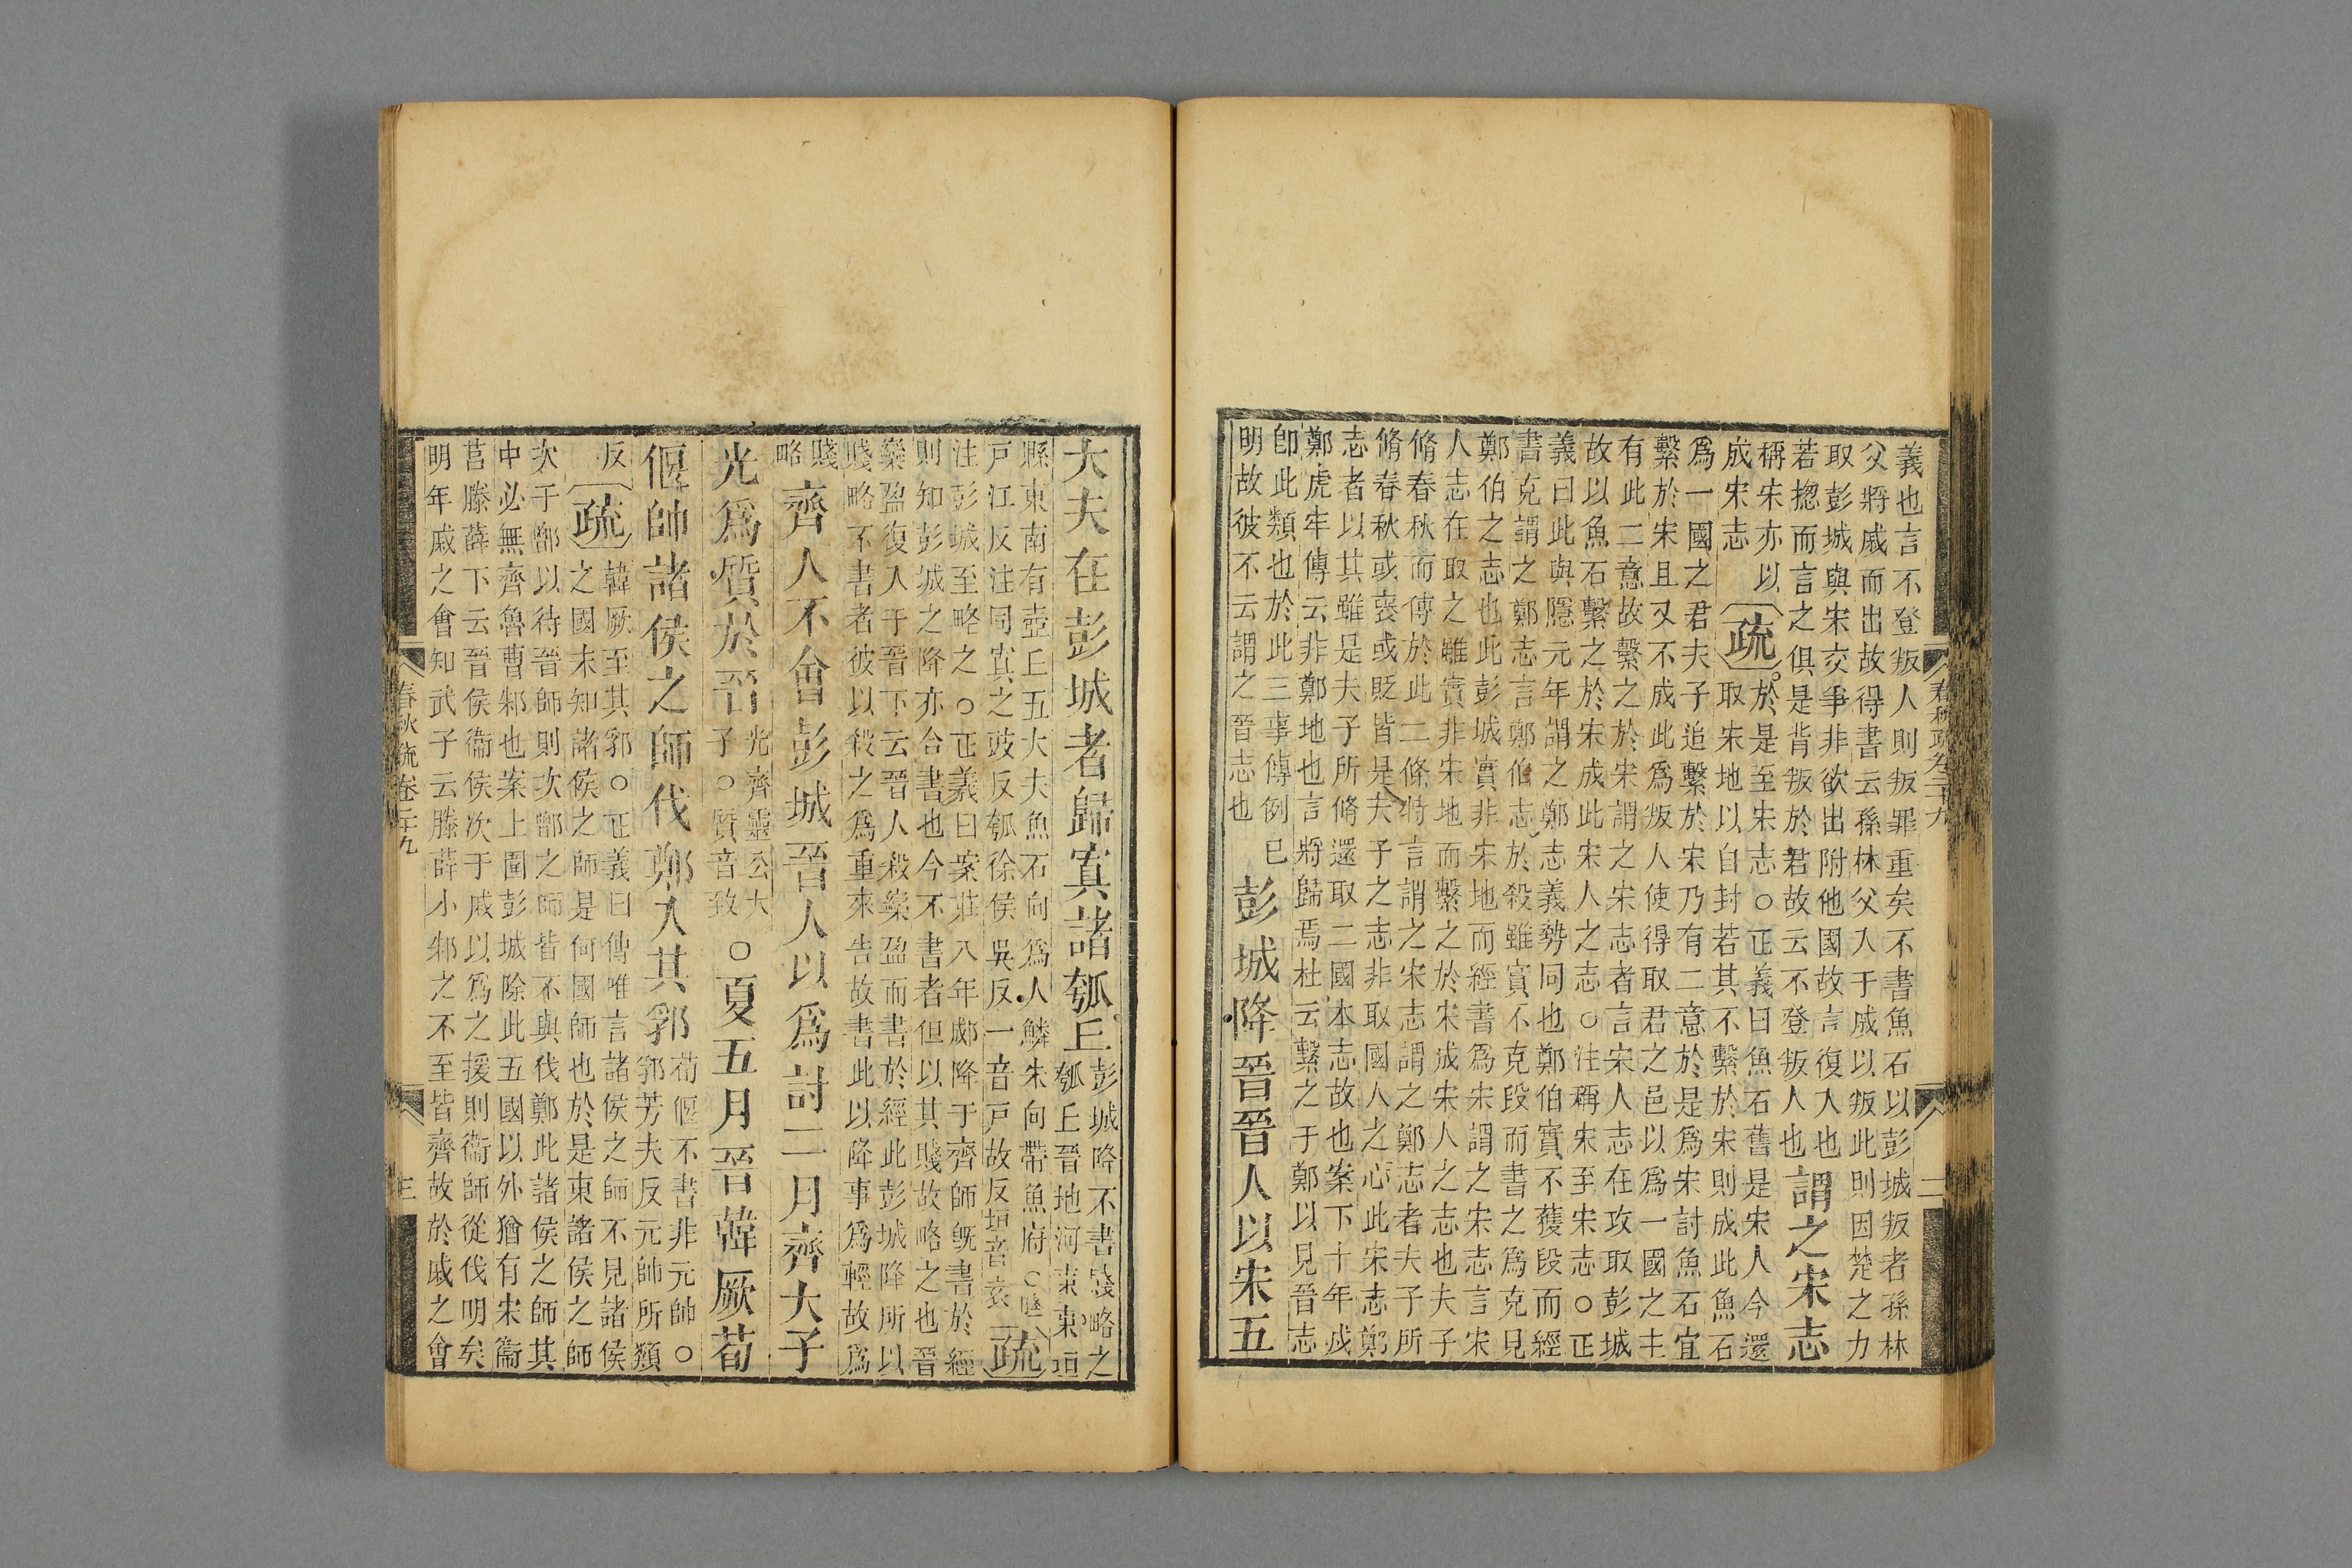 義也言不登叛人則叛罪重矣不書魚石以彭城叛者孫林
父將戚而出故得書云孫林父入于戚以叛此則因楚之力
取彭城與宋交爭非欲出附他國故言復入也
若揔而言之俱是背叛於君故云不登叛人也
謂之宋志
稱宋亦以
成宋志
疏
於是至宋志○正義曰魚石舊是宋人今還
取宋地以自封若其不繫於宋則成此魚石
爲一國之君夫子追繫於宋乃有二意於是爲宋討魚石宜
繫於宋且又不成此爲叛人使得取君之邑以爲一國之主
有此二意故繫之於宋謂之宋志者言宋人志在攻取彭城
故以魚石繫之於宋成此宋人之志○注稱宋至宋志○正
義曰此與隱元年謂之鄭志義勢同也鄭伯實不獲段而經
書克謂之鄭志言鄭伯志於殺雖實不克段而書之爲克見
鄭伯之志也此彭城實非宋地而經書爲宋謂之宋志言宋
人志在取之雖實非宋地而繫之於宋成宋人之志也夫子
脩春秋而傳於此二條特言謂之宋志謂之鄭志者夫子所
脩春秋或襃或貶皆是夫子之志非取國人之心此宋志鄭
志者以其雖是夫子所脩還取二國本志故也案下十年戍
鄭虎牢傳云非鄭地也言將歸焉杜云繫之于鄭以見晉志
卽此類也於此三事傳例已
明故彼不云謂之晉志也
彭城降晉晉人以宋五
春秋疏卷二十九
二
大夫在彭城者歸寘諸瓠丘
彭城降不書賤略之
瓠丘晉地河東東垣
縣東南有壺丘五大夫魚石向爲人鱗朱向帶魚府○降
戶江反注同寘之豉反瓠徐侯吳反一音戶故反垣音袁
疏
注彭城至略之○正義曰案莊八年郕降于齊師旣書於經
則知彭城之降亦合書也今不書者但以其賤故略之也晉
欒盈復入于晉下云晉人殺欒盈而書於經此彭城降所以
賤略不書者彼以殺之爲重來告故書此以降事爲輕故爲
賤
略
齊人不會彭城晉人以爲討二月齊大子
光爲質於晉
光齊靈公大
子○質音致
○夏五月晉韓厥荀
偃帥諸侯之師伐鄭入其郛
荀偃不書非元帥○
郛芳夫反元帥所類
反
疏
韓厥至其郛○正義曰傳唯言諸侯之師不見諸侯
之國未知諸侯之師是何國師也於是東諸侯之師
次于鄫以待晉師則次鄫之師皆不與伐鄭此諸侯之師其
中必無齊魯曹邾也案上圍彭城除此五國以外猶有宋衞
莒滕薛下云晉侯衞侯次于戚以爲之援則衞師從伐明矣
明年戚之會知武子云滕薛小邾之不至皆齊故於戚之會
春秋疏卷二十九
三